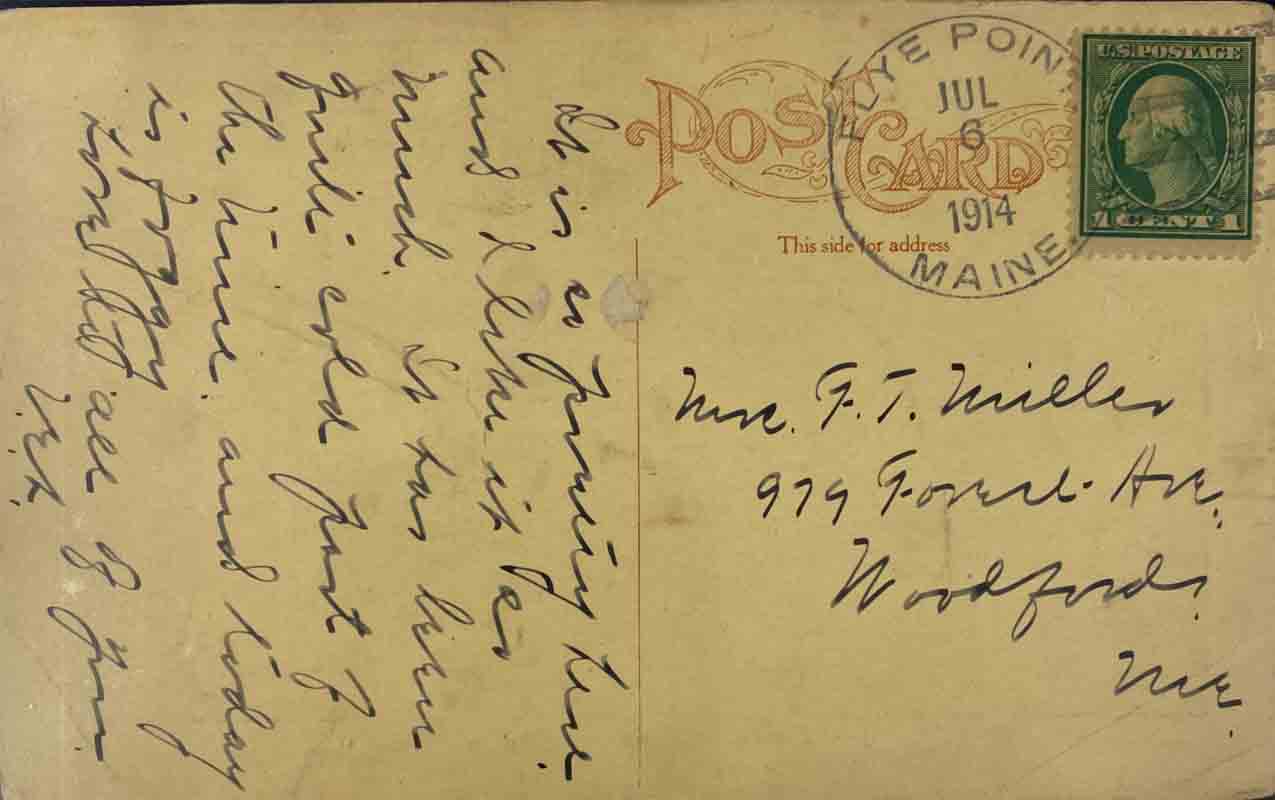 POST CARD
This side for address
FLYE POINT
JUL
6
1914
MAINE
U.S. POSTAGE
1 CENT 1
It is so pretty here
and I like it so
much. It has been
quite cold part of
the time, and today
is foggy
Love to all of you
Mrs. F. T. Miller
979 Forest Ave.
Woodfords.
Me.